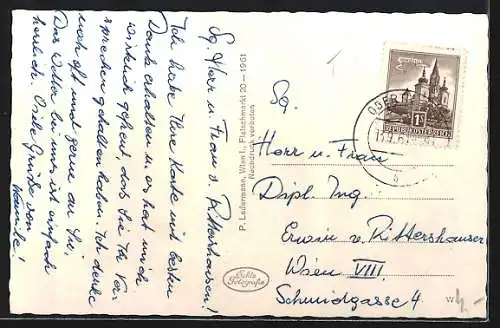 Sg. Herr u. Frau v. Rittershausen!
Ich habe Ihre Karte mit besten
Dank erhalten u. es hat mich
wirklich gefreut, dass Sie Ihr Ver-
sprechen gehalten haben. Ich denke
noch oft und gerne an Sie,
Das Wetter bei uns ist einfach
herrlich. Viele Grüße von
P. Ledermann, Wien I., Fleischmarkt 20 – 1961
Nachdruck verboten
Echte
Fotografie
REPUBLIK ÖSTERREICH
1S
Herr u. Frau
Dipl. Ing.
Erwin v. Rittershausen
Wien VIII.
Schmidgasse 4.
W
4.-